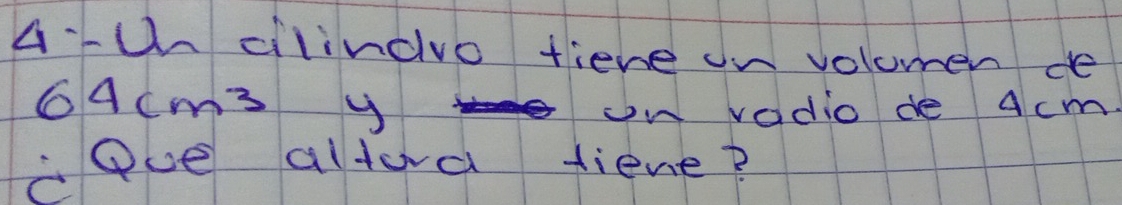 4.- Un cilindro tiene un volumen de
64cm³ y un radio de 4cm.
¿Que altura tiene?